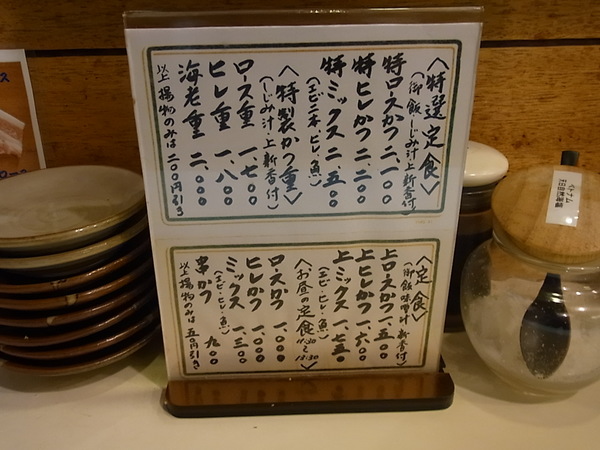 〈特選定食〉
(御飯・しじみ汁上新香付)
特ロースかつ 二、一〇〇
特ヒレかつ 二、二〇〇
特ミックス 二、五〇〇
(エビ二本、ヒレ、魚)
〈特製かつ重〉
(しじみ汁上新香付)
ロース重 一、七〇〇
ヒレ重 一、八〇〇
海老重 二、〇〇〇
以上揚物のみは二〇〇円引き
〈定食〉
(御飯味噌汁新香付)
上ロースかつ 一、五〇〇
上ヒレかつ 一、六〇〇
上ミックス 一、七五〇
(エビ・ヒレ・魚)
〈お昼の定食 11:30〜13:30〉
ロースかつ 一、〇〇〇
ヒレかつ 一、〇〇〇
ミックス 一、三〇〇
(エビ・ヒレ・魚)
串かつ 九〇〇
以上揚物のみは五〇円引き
ベトナム